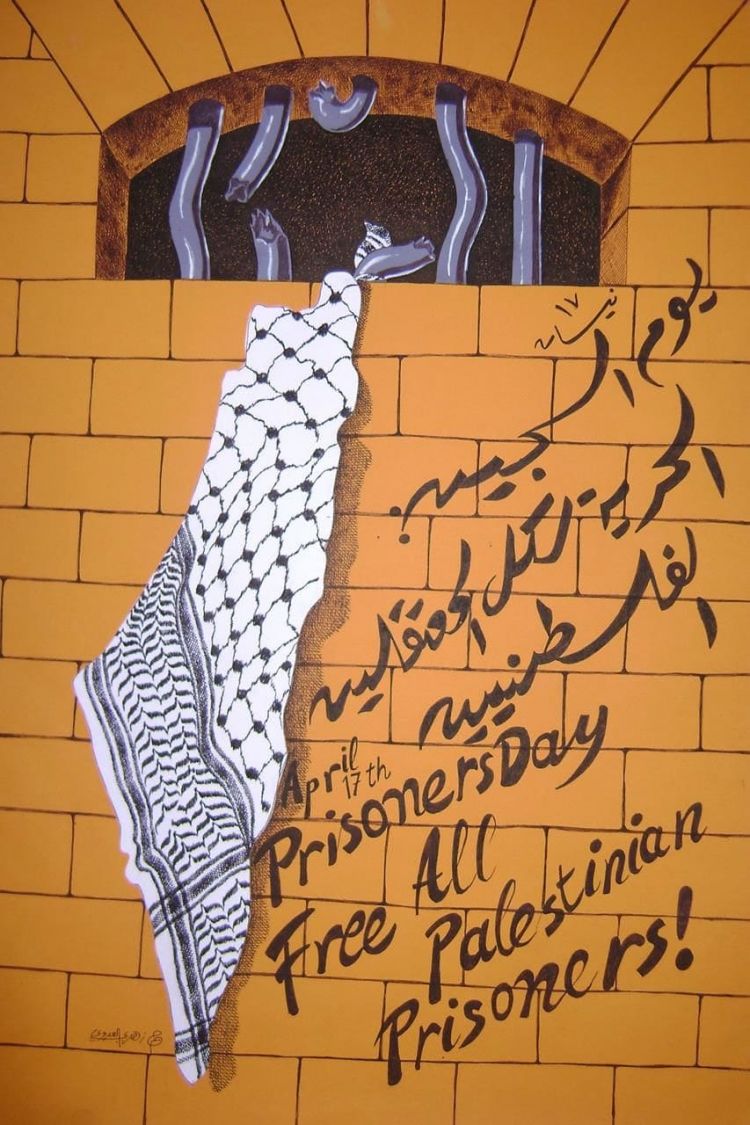 ١٧
نيسان
يوم السجين
الحرية لكل المعتقلين
الفلسطينيين
April
17th
Prisoners Day
Free All
Palestinian
Prisoners!